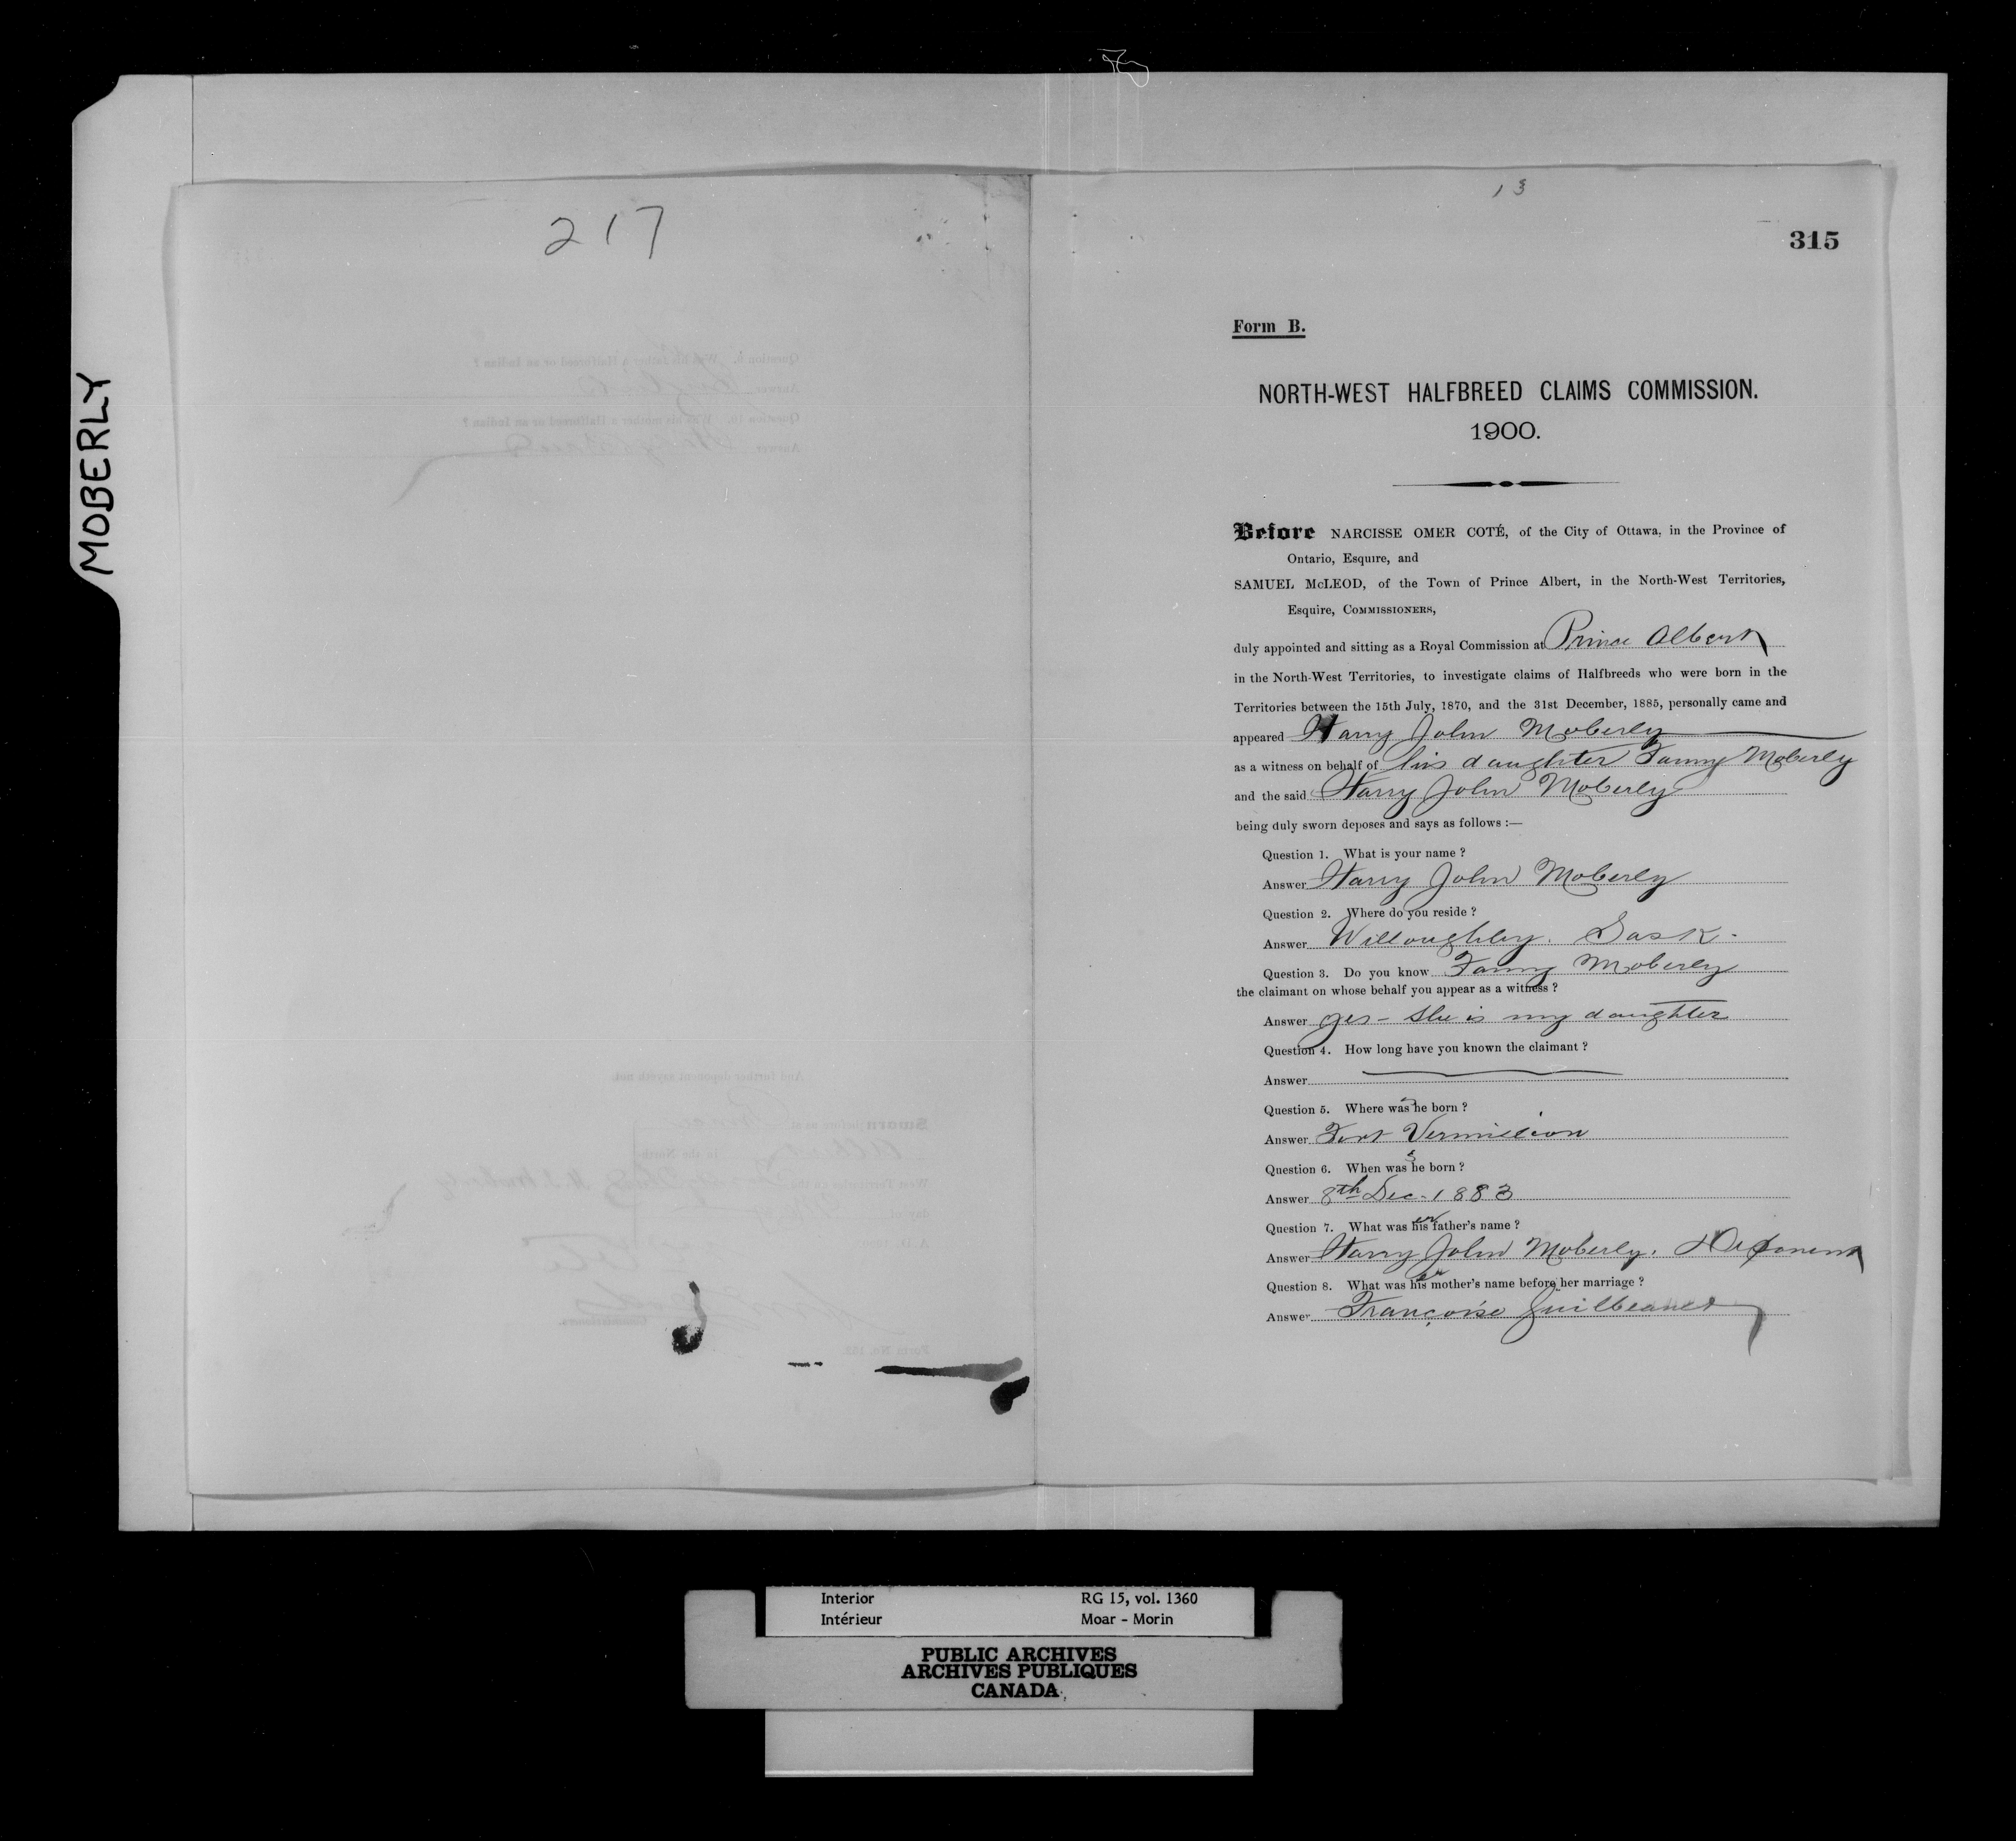 MOBERLY
217
13
315
Form B.
NORTH-WEST HALFBREED CLAIMS COMMISSION.
1900.
Before NARCISSE OMER COTÉ, of the City of Ottawa, in the Province of
Ontario, Esquire, and
SAMUEL McLEOD, of the Town of Prince Albert, in the North-West Territories,
Esquire, COMMISSIONERS,
duly appointed and sitting as a Royal Commission at Prince Albert
in the North-West Territories, to investigate claims of Halfbreeds who were born in the
Territories between the 15th July, 1870, and the 31st December, 1885, personally came and
appeared Harry John Moberly
as a witness on behalf of his daughter Fanny Moberly
and the said Harry John Moberly
being duly sworn deposes and says as follows :—
Question 1. What is your name ?
Answer Harry John Moberly
Question 2. Where do you reside ?
Answer Willoughby. Sask.
Question 3. Do you know Fanny Moberly
the claimant on whose behalf you appear as a witness ?
Answer yes - she is my daughter
Question 4. How long have you known the claimant ?
Answer
Question 5. Where was she born ?
Answer Fort Vermilion
Question 6. When was she born ?
Answer 8th Dec. 1883
Question 7. What was her father's name ?
Answer Harry John Moberly. Deponent
Question 8. What was her mother's name before her marriage ?
Answer Françoise
Interior RG 15, vol. 1360
Intérieur Moar - Morin
PUBLIC ARCHIVES
ARCHIVES PUBLIQUES
CANADA